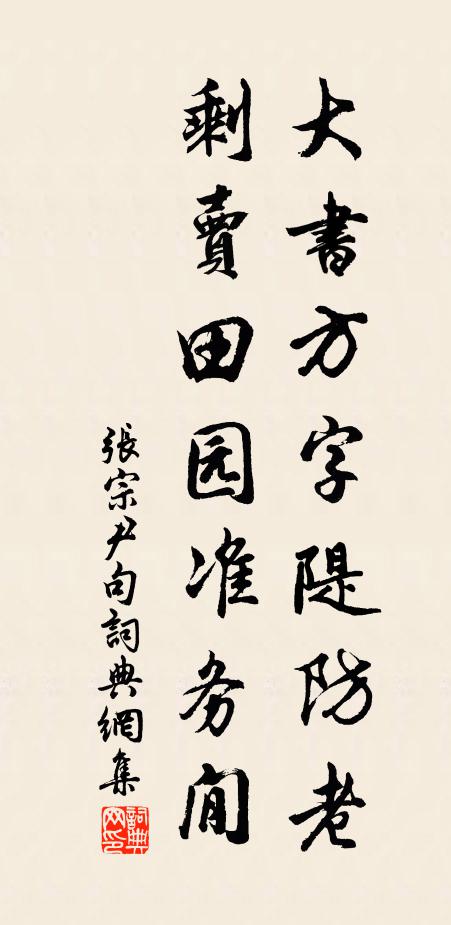 大書方字隄防老
剩賣田园准务闲
張宗尹句詞典網集
詞典网印